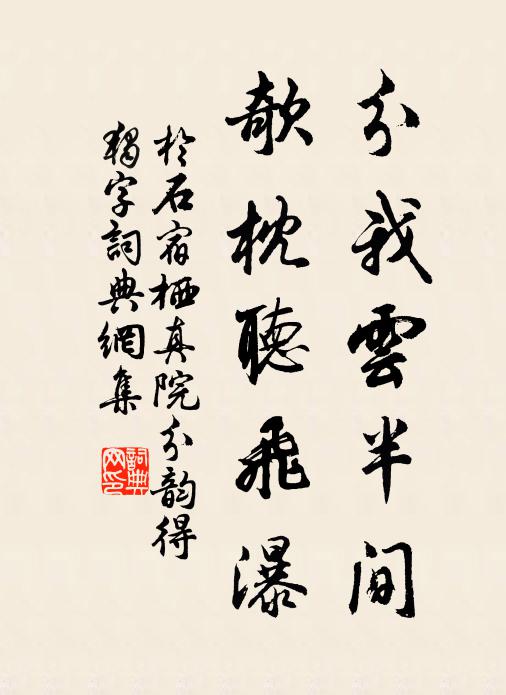 分我雲半間
欹枕聽飛瀑
於石宿栖真院分韵得
獨字詞典網集
詞典网印